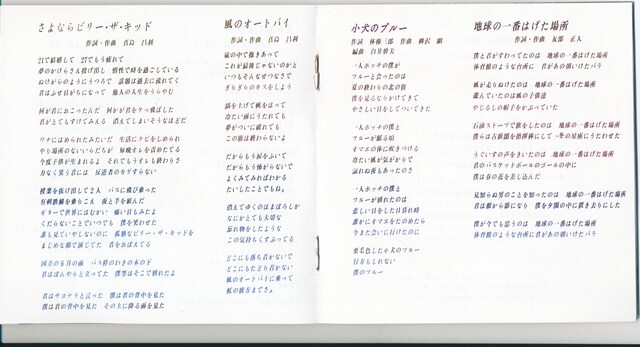 さよならビリー・ザ・キッド
作詞・作曲 真島 昌利
21で結婚して 27でもう疲れて
夢のかけらさえ投げ出し 惰性で時を過ごしている
ぬけがらのようにうつろで 話題は過去に流れてく
君はふせ目がちになって 他人の人生をうらやむ
何が君におこったんだ 何かが君をケッ飛ばした
君がとてもすけてみえる 消えてしまいそうなほどだ
ワナにはめられたみたいだ 生活にクビをしめられ
やり場所のないいらだちが 毎晩オレを責めたてる
今度子供が生まれるよ それでもオマエも終わりさ
力なく笑う君には 反逆者のカゲすらない
授業を抜け出して2人 バスに飛び乗った
有刺鉄線を乗りこえ 夜と手を組んだ
ギターで世界にはむかい 痛い目もみたよ
くだらないことでいつでも 僕を笑わせた
誰も見ていやしないのに 孤独なビリー・ザ・キッドを
まじめな顔で演じてた 君をおぼえてる
国立の6月の雨 バス停のわきの木の下
君はぼんやりと立ってた 僕等はそこで別れたよ
君はサヨナラと言った 僕は君の背中を見た
僕は君の背中を見た その上に降る雨を見た
風のオートバイ
作詞・作曲 真島 昌利
嵐の中で抱きあって
これが最後じゃないのかと
いつもそんなせつなさで
ぎりぎりのキスをしよう
錨を上げて帆をはって
冷たい雨にうたれても
夢がついに破れても
この旅は終わらないよ
だからもう涙をふいて
だからもう怖がらないで
よくみてみればわかる
たいしたことでもね。
消えてゆくのはまぼろしか
なにかとても大切な
忘れ物をしたような
この気持ちくすぶってる
どこにも落ち着かない
どこにもたどり着かない
風のオートバイに乗って
虹の彼方までさ。
小犬のプルー
作詞 林 作曲
編曲 白井幹夫
一人ホッチの僕と
プルーと会ったのは
夏の終わりの北の街
僕を見るなりかけてきて
やさしい目をしていてきた
一人ホッチの僕と
プルーが眠る頃
オマエの体に吹きつける
冷たい風が気がかりで
眠れぬ夜もあったのさ
一人ホッチの僕と
プルーが別れたのは
悲しい目をした日暮れ時
誰かにオマエをたのめたら
今また会いに行けたのに
栗毛色した小犬のプルー
行方もしれない
僕のプルー
地球の一番はげた場所
作詞・作曲 友部 正人
僕と君がすわってたのは 地球の一番はげた場所
体育館のような台所に 君があの頃いけたバラ
風が走りぬけたのは 地球の一番はげた場所
並んでいたのは風の子供達
やじるしの帽子をかぶっていた
石油ストーブで旅をしたのは 地球の一番はげた場所
僕らは古新聞を指揮棒にして 冬の星座にうたわせた
うぐいすの声をきいたのは 地球の一番はげた場所
君のバスケットボールのゴールの中に
僕は春の花を差し込んだ
見知らぬ男のことを知ったのは 地球の一番はげた場所
君は髪から影になり 僕を夕闇の中に置き去りにした
僕が今でも思うのは 地球の一番はげた場所
体育館のような台所に 君があの頃いけたバラ